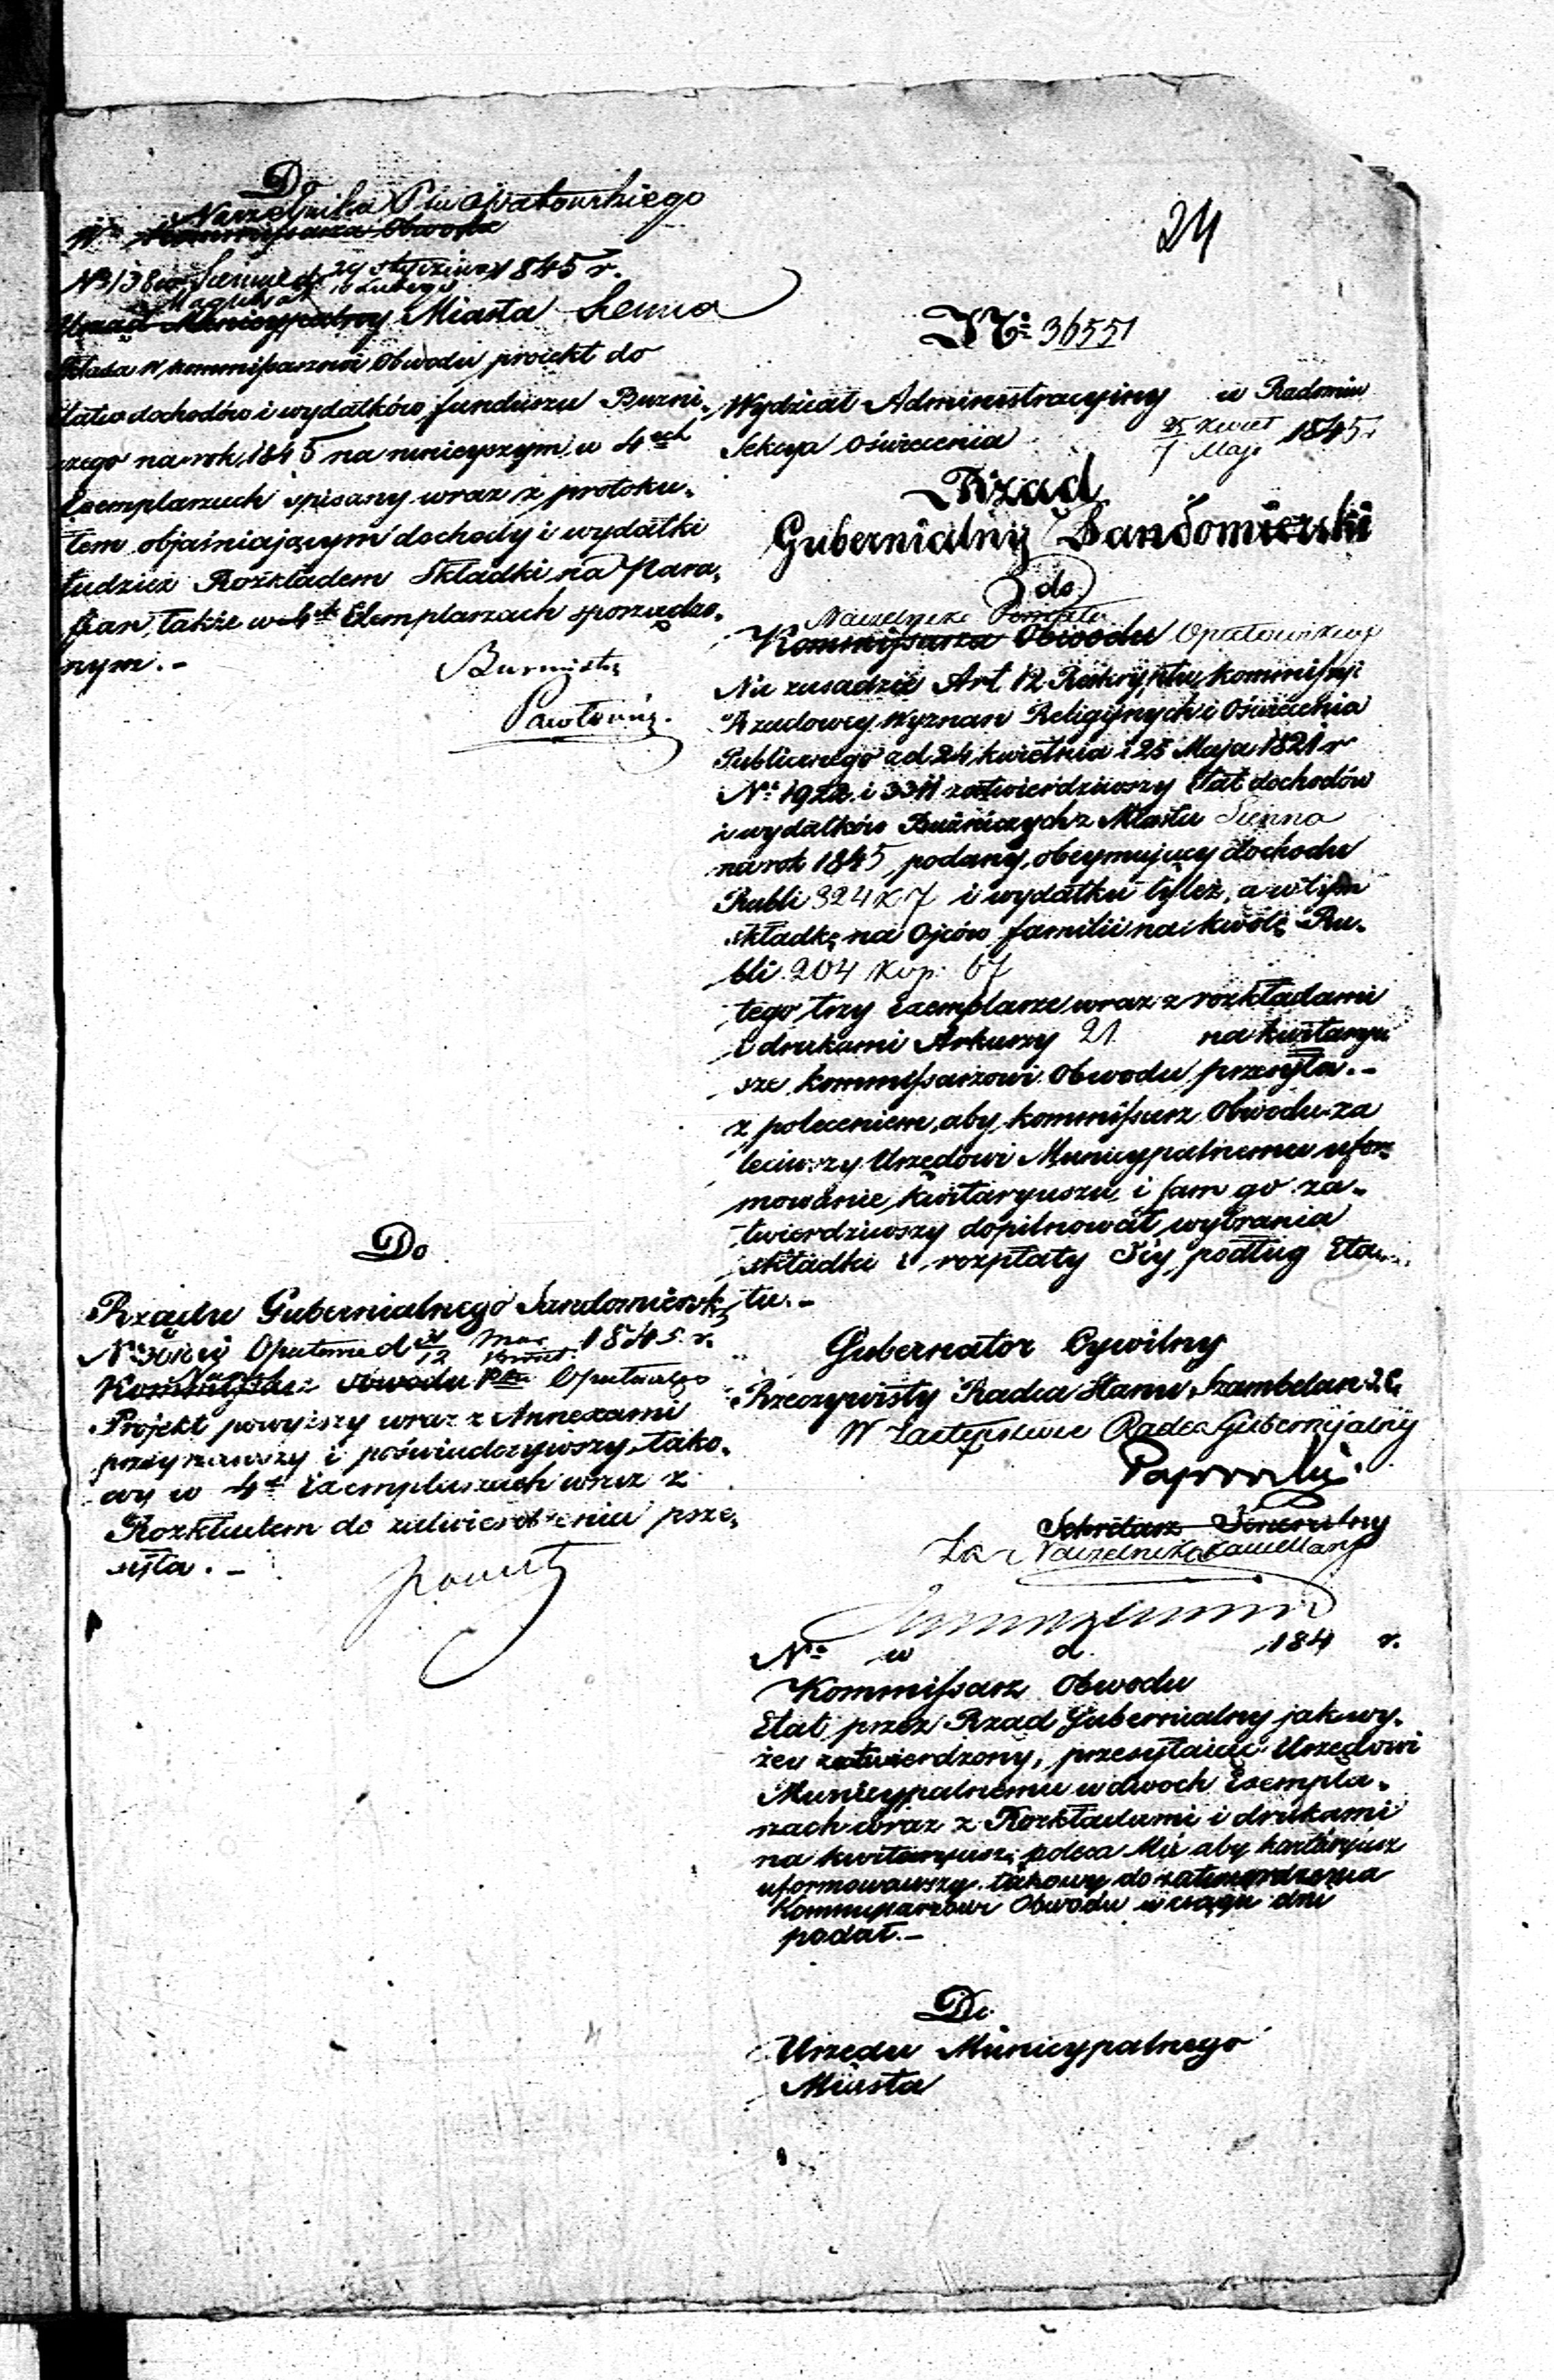 Do
Naczelnika Ptu Opatowskiego
W° Kommissarza Obwodu
N° 138 w Siennie d. 29 Stycznia 1845 r.
10 Lutego
Magistrat
Urząd Municypalny Miasta Sienna
Składa W kommissarzowi Obwodu proiekt do
Etatu dochodów i wydatków funduszu Buzni,
czego na rok 1845 na ninieyszym w 4ech
Exemplarzach spisany wraz z protoku,
łem objaśniaiącym dochody i wydatki
tudzież Rozkładem Składki na Para,
fian, także w 4ch Exemplarzach sporządzo,
nym. -
Burmistrz
Do
Rządu Gubernialnego Sandomierski,
N° w Opatowie d 31/12 Mar/Kwiet 1845 r.
Kommissarz Obwodu Ptu Opatowskiego
Projekt powyższy wraz z Annexami
przeyrzawszy i poświadczywszy, tako,
wy w 4ch Exemplarzach wraz z
Rozkładem do zatwierdzenia prze,
syła. -
24
N° 36551
Wydział Administracyiny w Radomiu
Sekcya Oświecenia 25 Kwiet/7 Maja 1845 r
Rząd
Gubernialny Sandomierski
do
Naczelnika Powiatu
Kommissarza Obwodu Opatowskiego
Na zasadzie Art 12 Reskryptu kommissyi
Rządowey Wyznań Religijnych i Oświecenia
Publicznego z d. 24 kwietnia i 25 Maja 1821 r
N° 1922 i 3311 zatwierdziwszy Etat dochodów
i wydatków Bużniczych z Miasta Sienna
na rok 1845 podany, obeymujący dochodu
Rubli 324 K 7 i wydatku tyleż, a w tym
składkę na Ojców familii na kwotę Ru,
bli 204 Kop: 67
tego trzy Exemplarze wraz z rozkładami
i drukami Arkuszy 21 na kwitaryu
sze kommissarzowi Obwodu przesyła. -
z poleceniem, aby kommissarz Obwodu za
leciwszy Urzędowi Municypalnemu ufor,
mowanie kwitaryuszu i sam go za,
twierdziwszy dopilnował wybrania
składki i rozpłaty Jey podług Eta,
tu. -
Gubernator Cywilny
Rzeczywisty Radca Stanu, Szambelan
W Zastępstwie Radca Gubernijalny
Sekretarz Jeneralny
Za Naczelnika Kancellaryi
N° w d. 184 r.
Kommissarz Obwodu
Etat przez Rząd Gubernialny jak wy,
żey zatwierdzony, przesyłaiąc Urzędowi
Municypalnemu w dwoch Exempla,
rzach wraz z Rozkładami i drukami
na kwitaryusz; poleca Mu aby kwitaryusz
uformowawszy takowy do zatwierdzenia
Kommissarzowi Obwodu w ciągu dni
podał. -
Do
Urzędu Municypalnego
Miasta